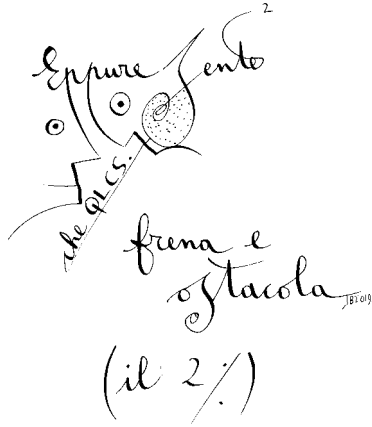 Eppure sento²
che QLCS.
frena e
ostacola
JB2019
(il 2%)